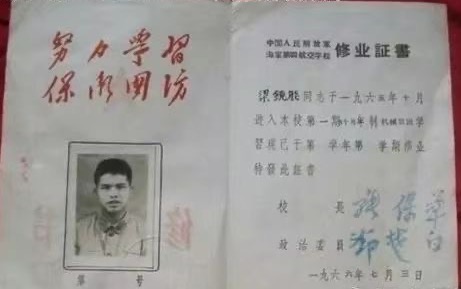 努力学習
保衛国防
第 号
中国人民解放軍
海軍第四航空学校
修业証書
同志于一九六五年十月
進入本校第一期
習現已于第 学年第 学期修业
特發此証書
校 長 張保華
政治委員
一九六六年七月三日